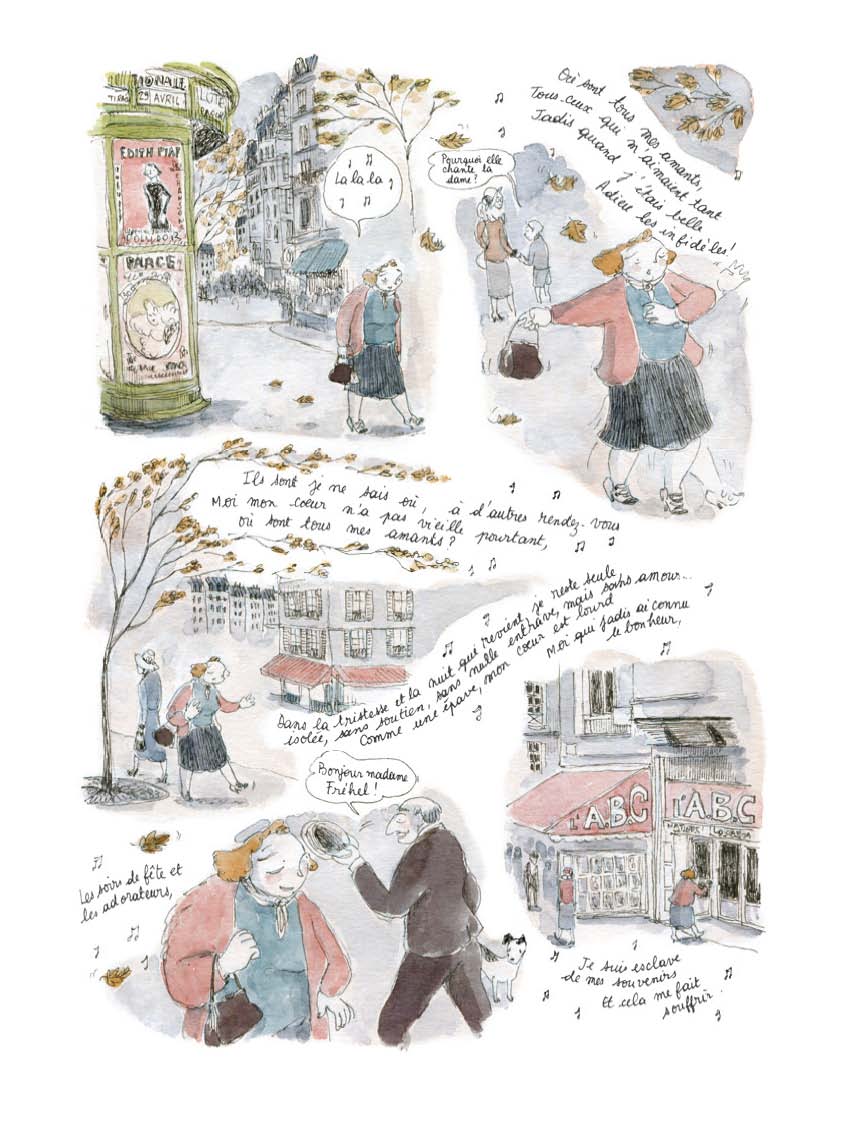 TIONALE
TIRAGE
29 AVRIL
LOTE
EDITH PIAF
La la la
Pourquoi elle
chante la
dame?
Où sont tous mes amants,
Tous ceux qui m'aimaient tant
Jadis quand j'étais belle
Adieu les infidèles!
Ils sont je ne sais où, à d'autres rendez-vous
Moi mon cœur n'a pas vieilli pourtant,
où sont tous mes amants?
Dans la tristesse et la nuit qui revient, je reste seule
isolée, sans soutien, sans nulle entrave, mais sans amour...
Comme une épave, mon cœur est lourd
Moi qui jadis ai connu
le bonheur,
Bonjour madame
Fréhel!
Les soirs de fête et
les adorateurs,
l'A.B.C
l'A.B.C
Je suis esclave
de mes souvenirs
Et cela me fait
souffrir.